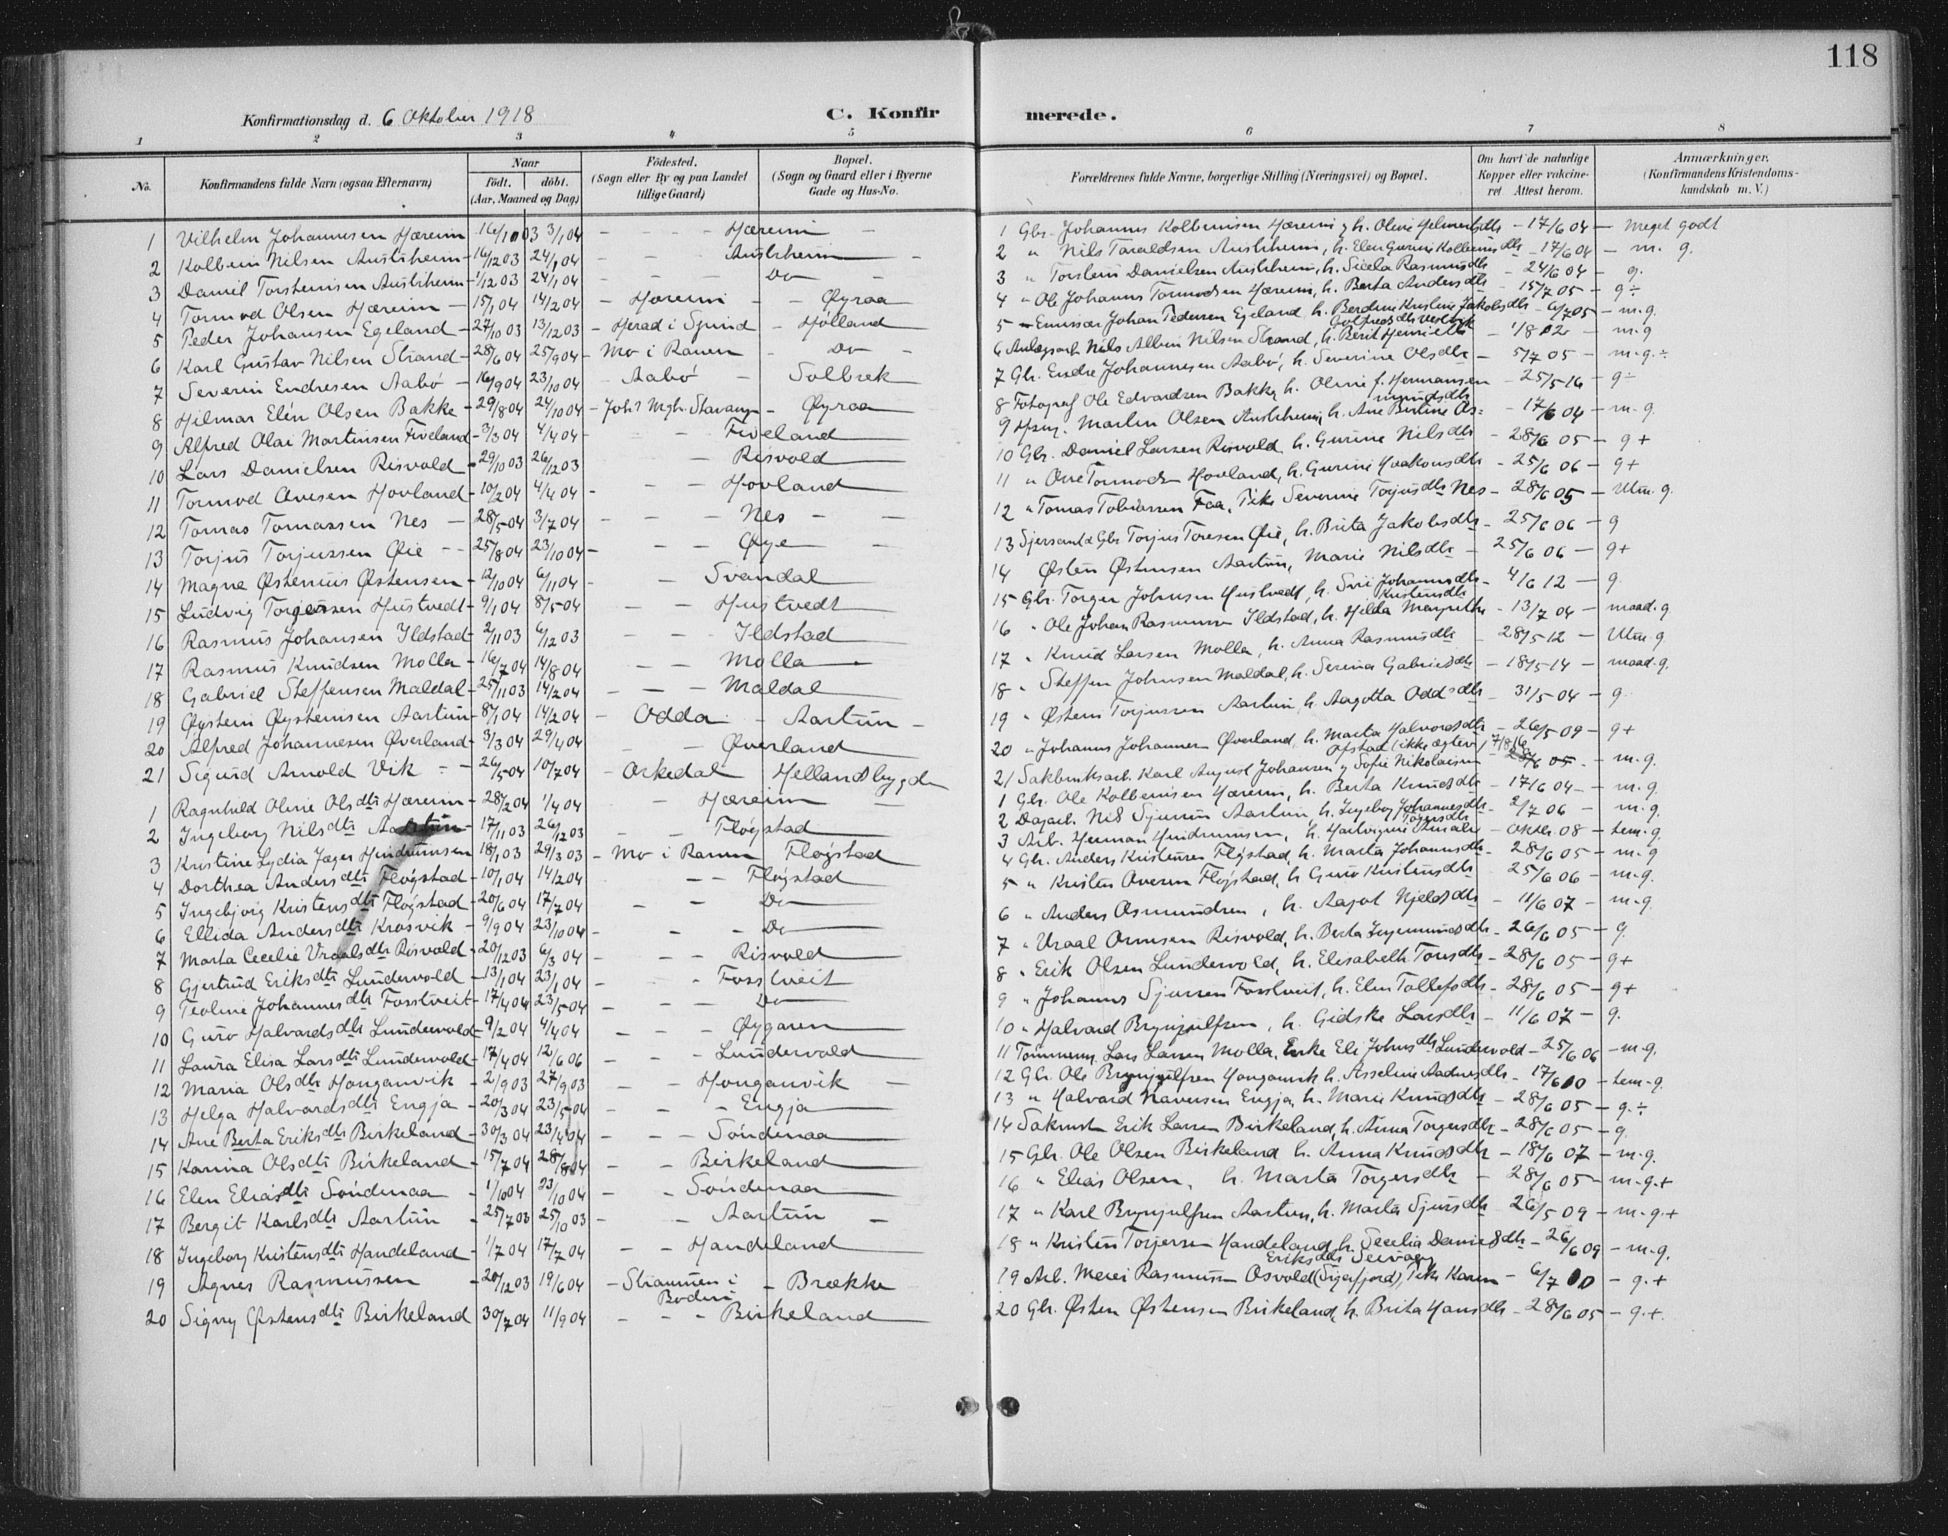 118
Konfirmationsdag d. 6 Oktober 1918
C. Konfir merede.
1 2 3 4 5 6 7 8
No. Konfirmandens fulde Navn (ogsaa Efternavn) Naar födt. döbt. (Aar, Maaned og Dag) Födested. (Sogn eller By og paa Landet tillige Gaard) Bopæl. (Sogn og Gaard eller i Byerne Gade og Hus-No. Forældrenes fulde Navne, borgerlige Stilling (Næringsvei) og Bopæl. Om havt de naturlige Kopper eller vakcineret. Attest herom. Anmærkninger. (Konfirmandens Kristendomskundskab m. V.)
1 Vilhelm Johannesen Hæreim 16/10 03 3/1 04 - - - Hæreim - 1 Gbr. Johannes Kolbeinsen Hæreim 17/6 04 - Meget godt
2 Kolbein Nilsen Austrheim 16/12 03 24/1 04 - - Austrheim - 2 " Nils Taraldsen Austrheim, h. Elen Gurine 17/6 04 - m. g.
3 Daniel Torsteinsen Austrheim 1/12 03 24/1 04 - - Do - 3 " Torstein Danielsen Austrheim, h. Rasmusdtr - 24/6 04 - g.
4 Tormod Olsen Hæreim - 15/1 04 14/2 04 - Hæreim - - Øyraa 4 " Ole Johannes Tormodsen Hæreim, h. Berta Andersdtr - 15/7 05 - g÷
5 Peder Johansen Egeland - 27/10 03 13/12 03 - Herad i Spind - Hølland 5 - Emissær Johan Pedersen Egeland h. Berdine Kristine Jakobsdtr - 6/7 05 - m-g.
6 Karl Gustav Nilsen Strand - 28/6 04 25/9 04 - Mo i Ranen - Do - 6 Anlægsarb. Nils Albin Nilsen Strand, h. Berit - 1/8 02 - m-g
7 Severin Endresen Aabø - 16/9 04 23/10 04 - Aabø - Solbrek 7 Gbr. Endre Johannesen Aabø, h. Severine Olsdtr - 5/7 05 - m-g.÷
8 Hilmar Elén Olsen Bakke - 29/8 04 24/10 04 - Joh's Mgh. Stavanger - Øyraa 8 Fotograf Ole Edvardsen Bakke, h. Oline f. Hermansen - 25/5 16 - g÷
9 Alfred Olai Martinsen Fiveland - 3/3 04 4/4 04 - - - Fiveland 9 Martin Olsen Austrheim, h. Ane Bertine - 17/6 04 - m-g.
10 Lars Danielsen Risvold - 29/10 03 26/12 03 - - Risvold 10 Gbr. Daniel Larsen Risvold h. Gurine Nilsdtr - 28/6 05 - g+
11 Tormod Ovesen Hovland - 10/2 04 4/4 04 - - - Hovland 11 " Ove Tormodsen Hovland, h. Gurine Haakonsdtr - 25/6 06 - g+
12 Tomas Tomassen Nes - 28/5 04 3/7 04 - - - Nes - - 12 " Tomas Tobiassen Faa, Pike Severine Torjusdtr Nes - 28/6 05 - Utm. g.
13 Torjus Torjussen Øie - - 25/8 04 23/10 04 - - - Øye - 13 Gbr Torjus Toresen Øie, h. Brita Jakobsdtr - 25/6 06 - g
14 Magne Østenius Østensen - 12/10 04 6/11 04 - - Svandal 14 Østen Østensen Aartun, Marie Nilsdtr - 25/6 06 - g+
15 Ludvig Torgersen Hustvedt - 9/1 04 8/5 04 - - Hustvedt 15 Gbr. Torger Johnsen Hustvedt, h. Siri Johannesdtr - 4/6 12 - g.
16 Rasmus Johansen Ildstad - 2/11 03 6/12 03 - - Ildstad 16 " Ole Johan Rasmussen Ildstad, h. Helda Margrethe Kristensdtr - 13/7 04 - maad. g
17 Rasmus Knudsen Molla - 16/7 04 14/8 04 - - Molla 17 " Knud Larsen Molla, h. Anna Rasmusdtr - 28/5 12 - Utm. g
18 Gabriel Steffensen Maldal - 25/11 03 14/2 04 - - - Maldal 18 " Steffen Johnsen Maldal, h. Serina Gabrielsdtr - 18/5 14 - maad. g.
19 Øystein Øysteinsen Aartun - 8/1 04 14/2 04 - Odda - Aartun - 19 " Østein Torjussen Aartun, h. Aagotta Oddsdtr - 31/5 04 - g
20 Alfred Johannesen Øverland - 3/3 04 29/4 04 - - Øverland 20 " Johannes Johannesen Øverland, h. Marta Halvorsdtr - 26/5 09 - g+
21 Sigurd Arnold Vik - - 26/5 04 10/7 04 - Orkedal Hellandsbygden 21 Sakbruksarb. Karl August Johansen og Sofie Nikolaisen Opstad (ikke ægtev) 7/8 16 28/6 05 - m-g.
1 Ragnhild Oline Olsdtr Hæreim - 28/2 04 1/4 04 - Hæreim - 1 Gbr. Ole Kolbeinsen Hæreim, h. Berta Knudsdtr - 17/6 04 - m-g.
2 Ingeborg Nilsdtr Aartun - 17/11 03 26/12 03 - - Fløgstad 2 Dagarb. Nils Sjursen Aartun, h. Ingeborg Johannesdtr - 2/7 06 - m-g.
3 Kristine Lydia Jæger Hindrumsen 18/1 03 29/3 03 - Mo i Ranen Fløgstad 3 Arb. Herman Hindrumsen, h. Amalie - oktbr. 08 - tem-g.
4 Dorthea Andersdtr Fløgstad - 10/1 04 14/2 04 - - Fløgstad 4 Gbr. Anders Kristensen Fløgstad, h. Marta Johannesdtr - 28/6 05 - m-g
5 Ingebjørg Kristensdtr Fløgstad - 20/6 04 17/7 04 - - Do 5 " Kristen Ovesen Fløgstad, h. Guro Kristensdtr - 25/6 06 - m-g.
6 Ellida Andersdtr Krosvik - 9/9 04 23/10 04 - - Do 6 " Anders Osmundsen, h. Aagot Njeldsdtr - 11/6 07 - m-g.
7 Marta Cecelie Vraalsdtr Risvold - 20/12 03 6/3 04 - - Risvold 7 " Vraal Ormsen Risvold, h. Berta Ingemundsdtr - 26/6 05 - g.
8 Gjertrud Eriksdtr Lundervold - 13/1 04 23/1 04 - - Fosstveit 8 " Erik Olsen Lundervold, h. Elisabeth Toresdtr - 28/6 05 - g+
9 Teoline Johannesdtr Fosstveit - 17/4 04 23/5 04 - - Do 9 " Johannes Sjursen Fosstveit, h. Elen Tollefsdtr - 28/6 05 - g+
10 Guro Halvardsdtr Lundervold - 9/2 04 4/4 04 - - Øygaren 10 " Halvard Brynjulfsen, h. Gidske Larsdtr - 11/6 07 - g.
11 Laura Elisa Larsdtr Lundervold - 17/4 04 12/6 06 - - Lundervold 11 Tømmerm. Lars Larsen Molla, Enke Eli Johnsdtr Lundervold - 25/6 06 - m-g.
12 Maria Olsdtr Honganvik - 2/9 03 27/9 03 - - Honganvik - 12 Gbr. Ole Brynjulfsen Honganvik h. Asseline Aadnesdtr - 17/6 10 - tem-g.
13 Helga Halvardsdtr Engja - 20/3 04 23/5 04 - - Engja 13 " Halvard Iversen Engja, h. Marie Knudsdtr - 28/6 05 - g.÷
14 Ane Berta Eriksdtr Birkeland - 30/3 04 23/4 04 - - - Söndenaa 14 Erik Larsen Birkeland, h. Anna Torgersdtr - 28/6 05 - g.
15 Karina Olsdtr Birkeland - 15/7 04 28/8 04 - - Birkeland 15 Gbr. Ole Olsen Birkeland h. Anna Knudsdtr - 18/6 07 - m-g.
16 Elen Eliasdtr Söndenaa - 1/10 04 23/10 04 - - Söndenaa 16 " Elias Olsen, h. Marta Torgersdtr - 28/6 05 - m-g.+
17 Bergit Karlsdtr Aartun - 25/7 03 25/10 03 - - Aartun - 17 " Karl Brynjulfsen Aartun, h. Marta Sjursdtr - 26/5 09 - m-g.+
18 Ingeborg Kristensdtr Handeland - 1/7 04 17/7 04 - - Handeland 18 " Kristen Torjersen Handeland, h. Secelia Danielsdtr - 26/6 09 - m-g.
19 Agnes Rasmussen - 20/12 03 19/6 04 - Straumen i Bodin - Brække 19 Arb. Meier Rasmussen Osvold (Sigerfjord), Pike Karen Eriksdtr - 6/7 10 - g.+
20 Signy Østensdtr Birkeland 30/7 04 11/9 04 - - - Birkeland 20 Gbr. Østen Østensen Birkeland, h. Brita Hansdtr - 28/6 05 - g.+